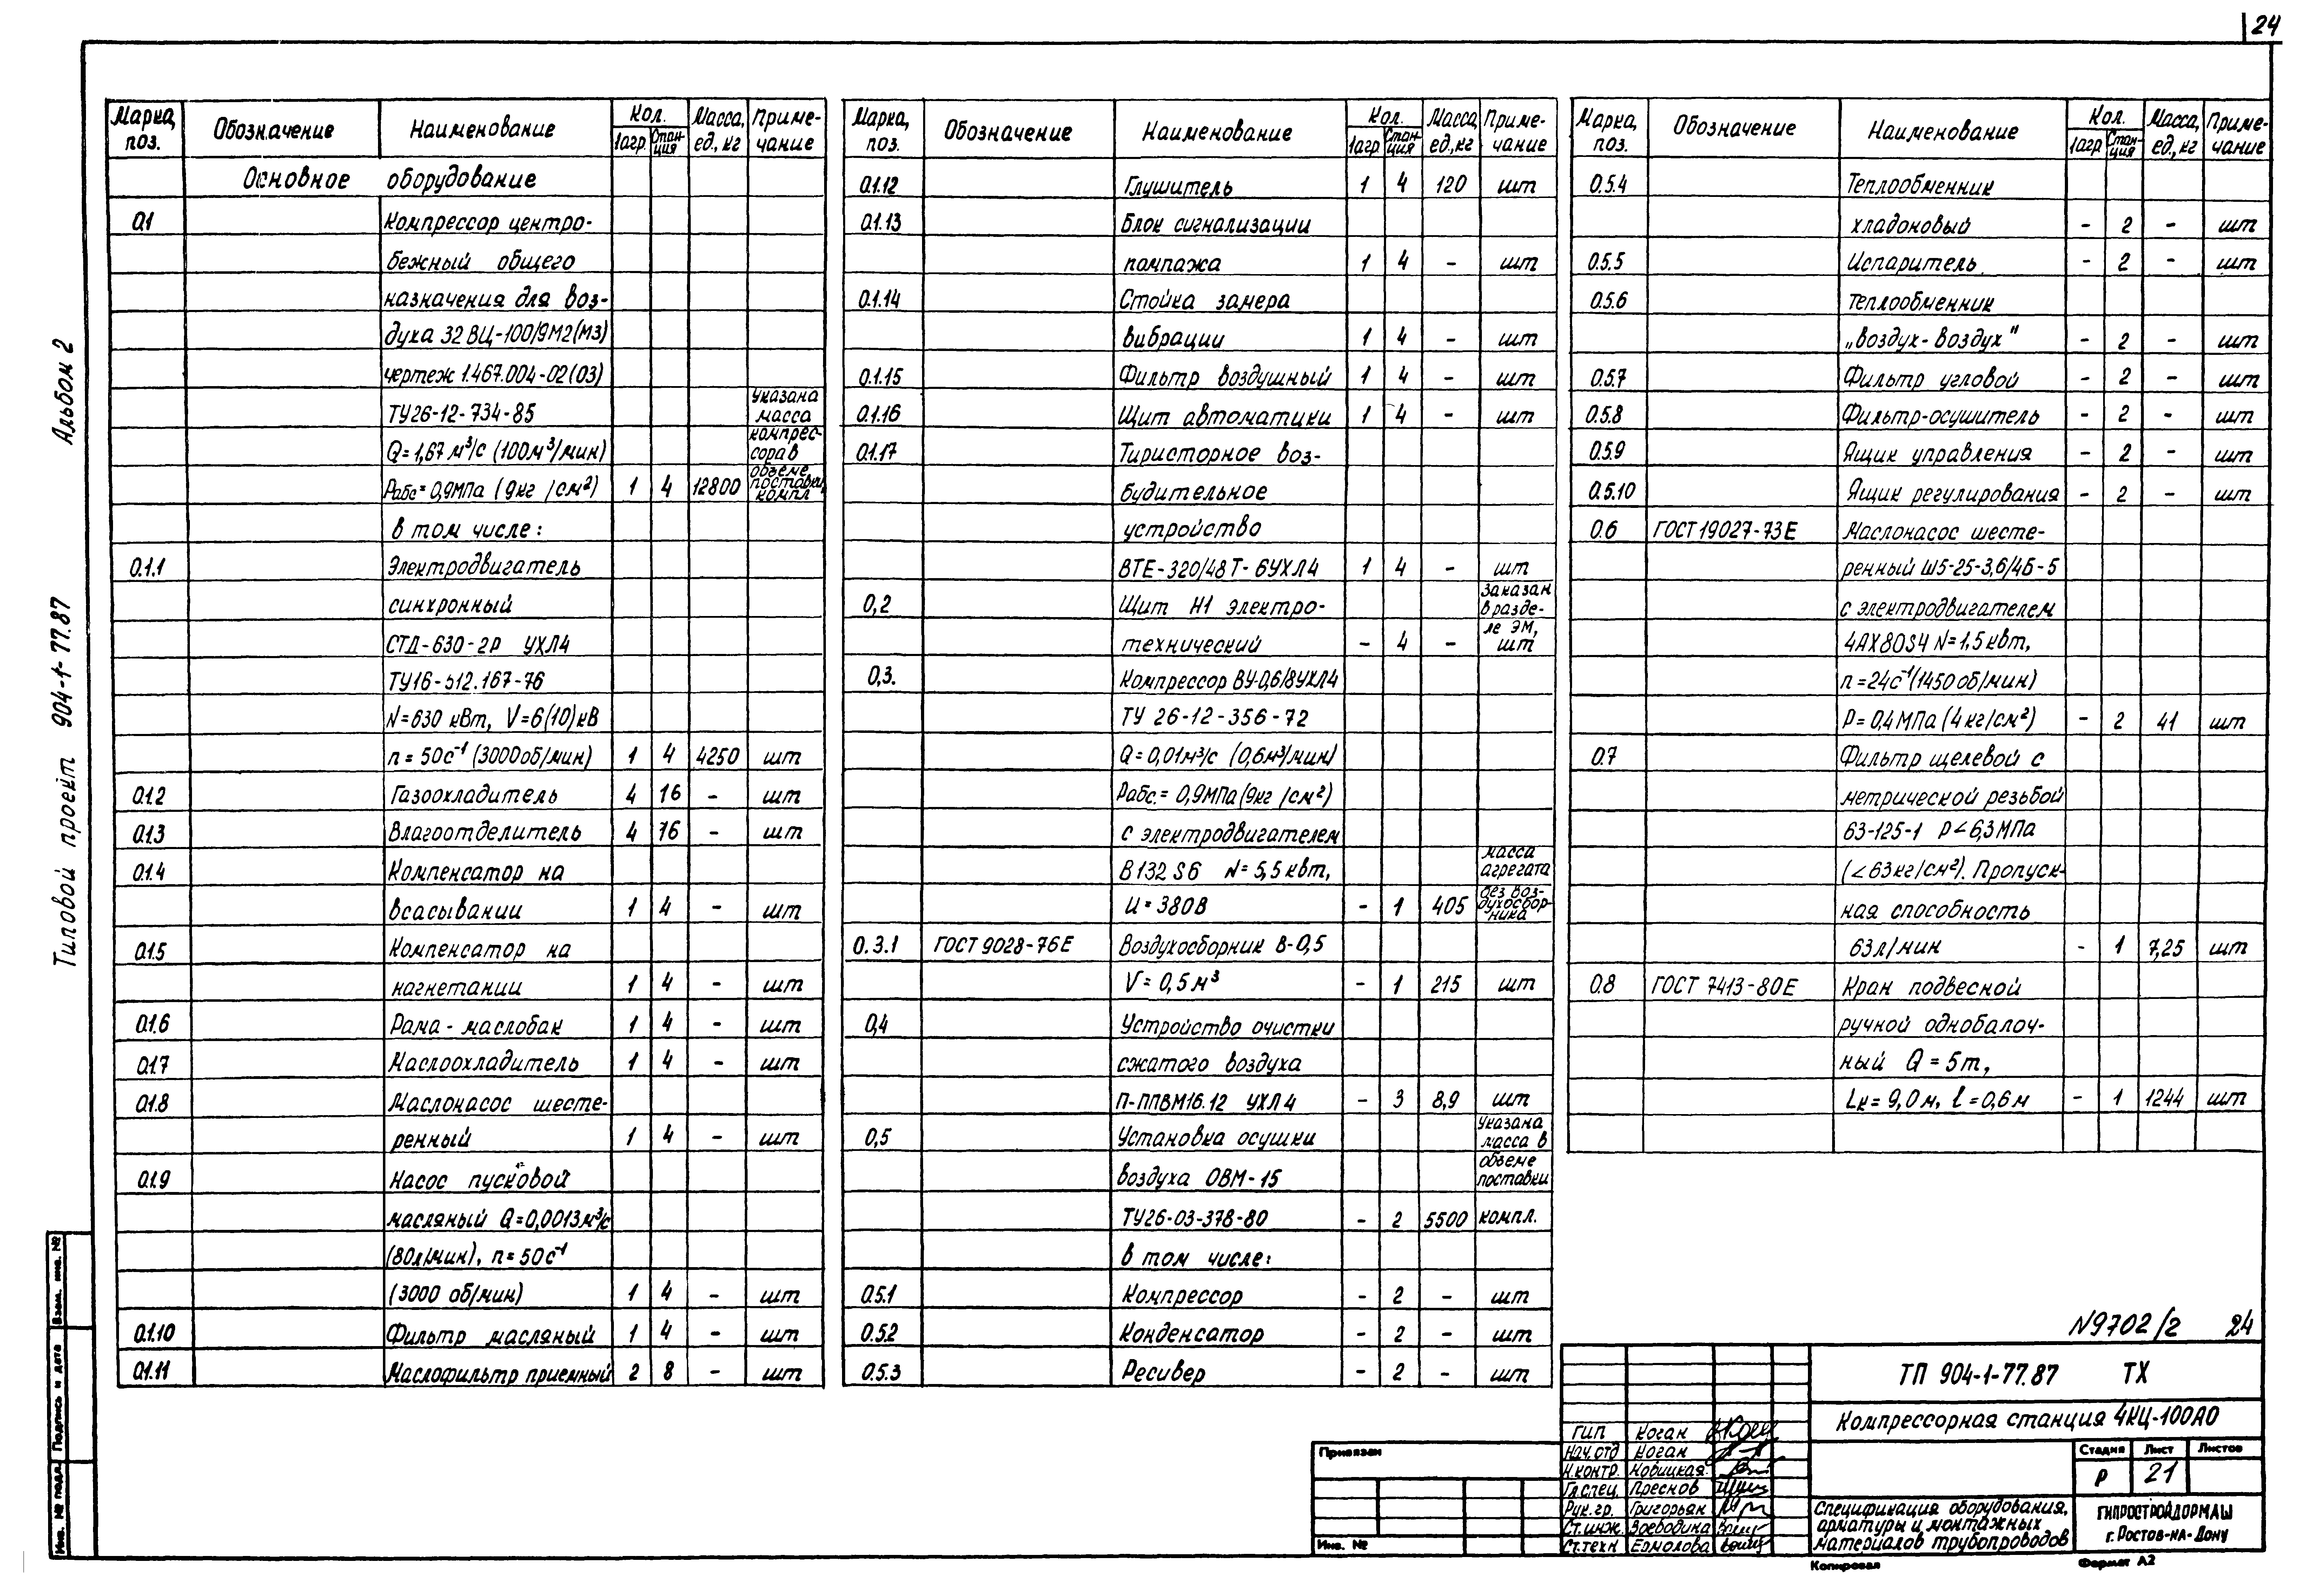 24
Марка, поз. Обозначение Наименование Кол. 1агр. Станция Масса, ед., кг Примечание
Основное оборудование
0.1 Компрессор центро-
бежный общего
назначения для воз-
духа 32 ВЦ-100/9М2(М3)
чертеж 1.467.004-02(03)
ТУ26-12-734-85 указана масса
Q=1,67 м³/с (100м³/мин) компрес-сора в
Рабс=0,9МПа (9кг/см²) 1 4 12800 объеме поставки, компл
в том числе:
0.1.1 Электродвигатель
синхронный
СТД-630-2Р УХЛ4
ТУ16-512.167-76
N=630 кВт, V=6(10)кВ
n=50с⁻¹ (3000об/мин) 1 4 4250 шт
0.1.2 Газоохладитель 4 16 - шт
0.1.3 Влагоотделитель 4 16 - шт
0.1.4 Компенсатор на
всасывании 1 4 - шт
0.1.5 Компенсатор на
нагнетании 1 4 - шт
0.1.6 Рама-маслобак 1 4 - шт
0.1.7 Маслоохладитель 1 4 - шт
0.1.8 Маслонасос шесте-
ренный 1 4 - шт
0.1.9 Насос пусковой
масляный Q=0,0013м³/с
(80л/мин), n=50с⁻¹
(3000 об/мин) 1 4 - шт
0.1.10 Фильтр масляный 1 4 - шт
0.1.11 Маслофильтр приемный 2 8 - шт
Марка, поз. Обозначение Наименование Кол. 1агр Станция Масса, ед., кг Примечание
0.1.12 Глушитель 1 4 120 шт
0.1.13 Блок сигнализации
помпажа 1 4 - шт
0.1.14 Стойка замера
вибрации 1 4 - шт
0.1.15 Фильтр воздушный 1 4 - шт
0.1.16 Щит автоматики 1 4 - шт
0.1.17 Тиристорное воз-
будительное
устройство
ВТЕ-320/48Т-6УХЛ4 1 4 - шт
0,2 Щит Н1 электро- Заказан в разде-
технический - 4 - ле ЭМ, шт
0,3. Компрессор ВУ-0,6/8УХЛ4
ТУ 26-12-356-72
Q=0,01м³/с (0,6м³/мин)
Рабс.=0,9МПа(9кг/см²)
с электродвигателем
В132 S6 N=5,5 кВт, масса агрегата
U=380В - 1 405 без воз-духосбор-ника
0.3.1 ГОСТ 9028-76Е Воздухосборник В-0,5
V=0,5м³ - 1 215 шт
0,4 Устройство очистки
сжатого воздуха
П-ППВМ16.12 УХЛ4 - 3 8,9 шт
0,5 Установка осушки указана масса в
воздуха ОВМ-15 объеме поставки
ТУ26-03-378-80 - 2 5500 компл.
в том числе:
0.5.1 Компрессор - 2 - шт
0.5.2 Конденсатор - 2 - шт
0.5.3 Ресивер - 2 - шт
Марка, поз. Обозначение Наименование Кол. 1агр Станция Масса, ед., кг Примечание
0.5.4 Теплообменник
хладоновый - 2 - шт
0.5.5 Испаритель - 2 - шт
0.5.6 Теплообменник
„воздух-воздух" - 2 - шт
0.5.7 Фильтр угловой - 2 - шт
0.5.8 Фильтр-осушитель - 2 - шт
0.5.9 Ящик управления - 2 - шт
0.5.10 Ящик регулирования - 2 - шт
0.6 ГОСТ 19027-73Е Маслонасос шесте-
ренный Ш5-25-3,6/4Б-5
с электродвигателем
4АХ80S4 N=1,5 кВт,
n=24с⁻¹(1450об/мин)
Р=0,4МПа (4кг/см²) - 2 41 шт
0.7 Фильтр щелевой с
метрической резьбой
63-125-1 Р<6,3МПа
(<63кг/см²). Пропуск-
ная способность
63л/мин - 1 7,25 шт
0.8 ГОСТ 7413-80Е Кран подвесной
ручной однобалоч-
ный Q=5т,
Lк=9,0м, l=0,6м - 1 1244 шт
Типовой проект 904-1-77.87 Альбом 2
Инв. № подл. Подпись и дата Взам. инв. №
N9702/2 24
ТП 904-1-77.87 ТХ
Компрессорная станция 4КЦ-100А0
Стадия Лист Листов
Р 21
Спецификация оборудования, арматуры и монтажных материалов трубопроводов
ГИПРОСТРОЙДОРМАШ
г. Ростов-на-Дону
ГИП Коган
Нач.отд Коган
Н.контр. Новицкая
Гл.спец. Преснов
Рук.гр. Григорьян
Ст.инж. Воеводина
Ст.техн Ермолова
Привязан
Инв. №
Копировал Формат А2